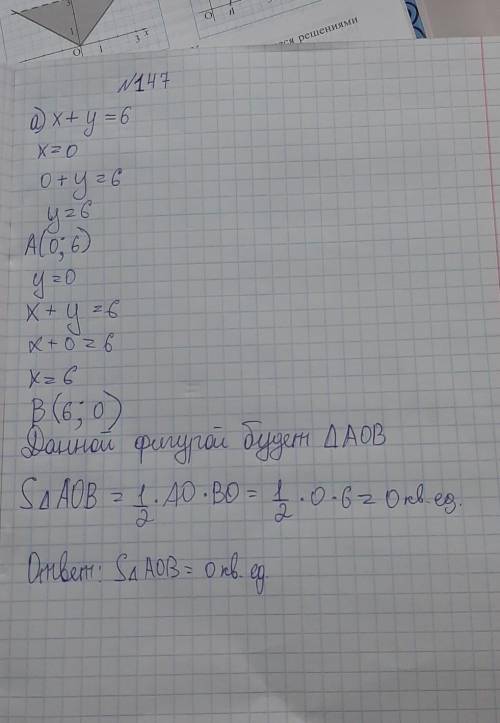 3
1
O 1 3 x
O
тся решениями
№147
а) x + y = 6
x = 0
0 + y = 6
y = 6
A(0; 6)
y = 0
x + y = 6
x + 0 = 6
x = 6
B(6; 0)
Данной фигурой будет △AOB
S△AOB = 1/2 · AO · BO = 1/2 · 0 · 6 = 0 кв. ед.
Ответ: S△AOB = 0 кв. ед.